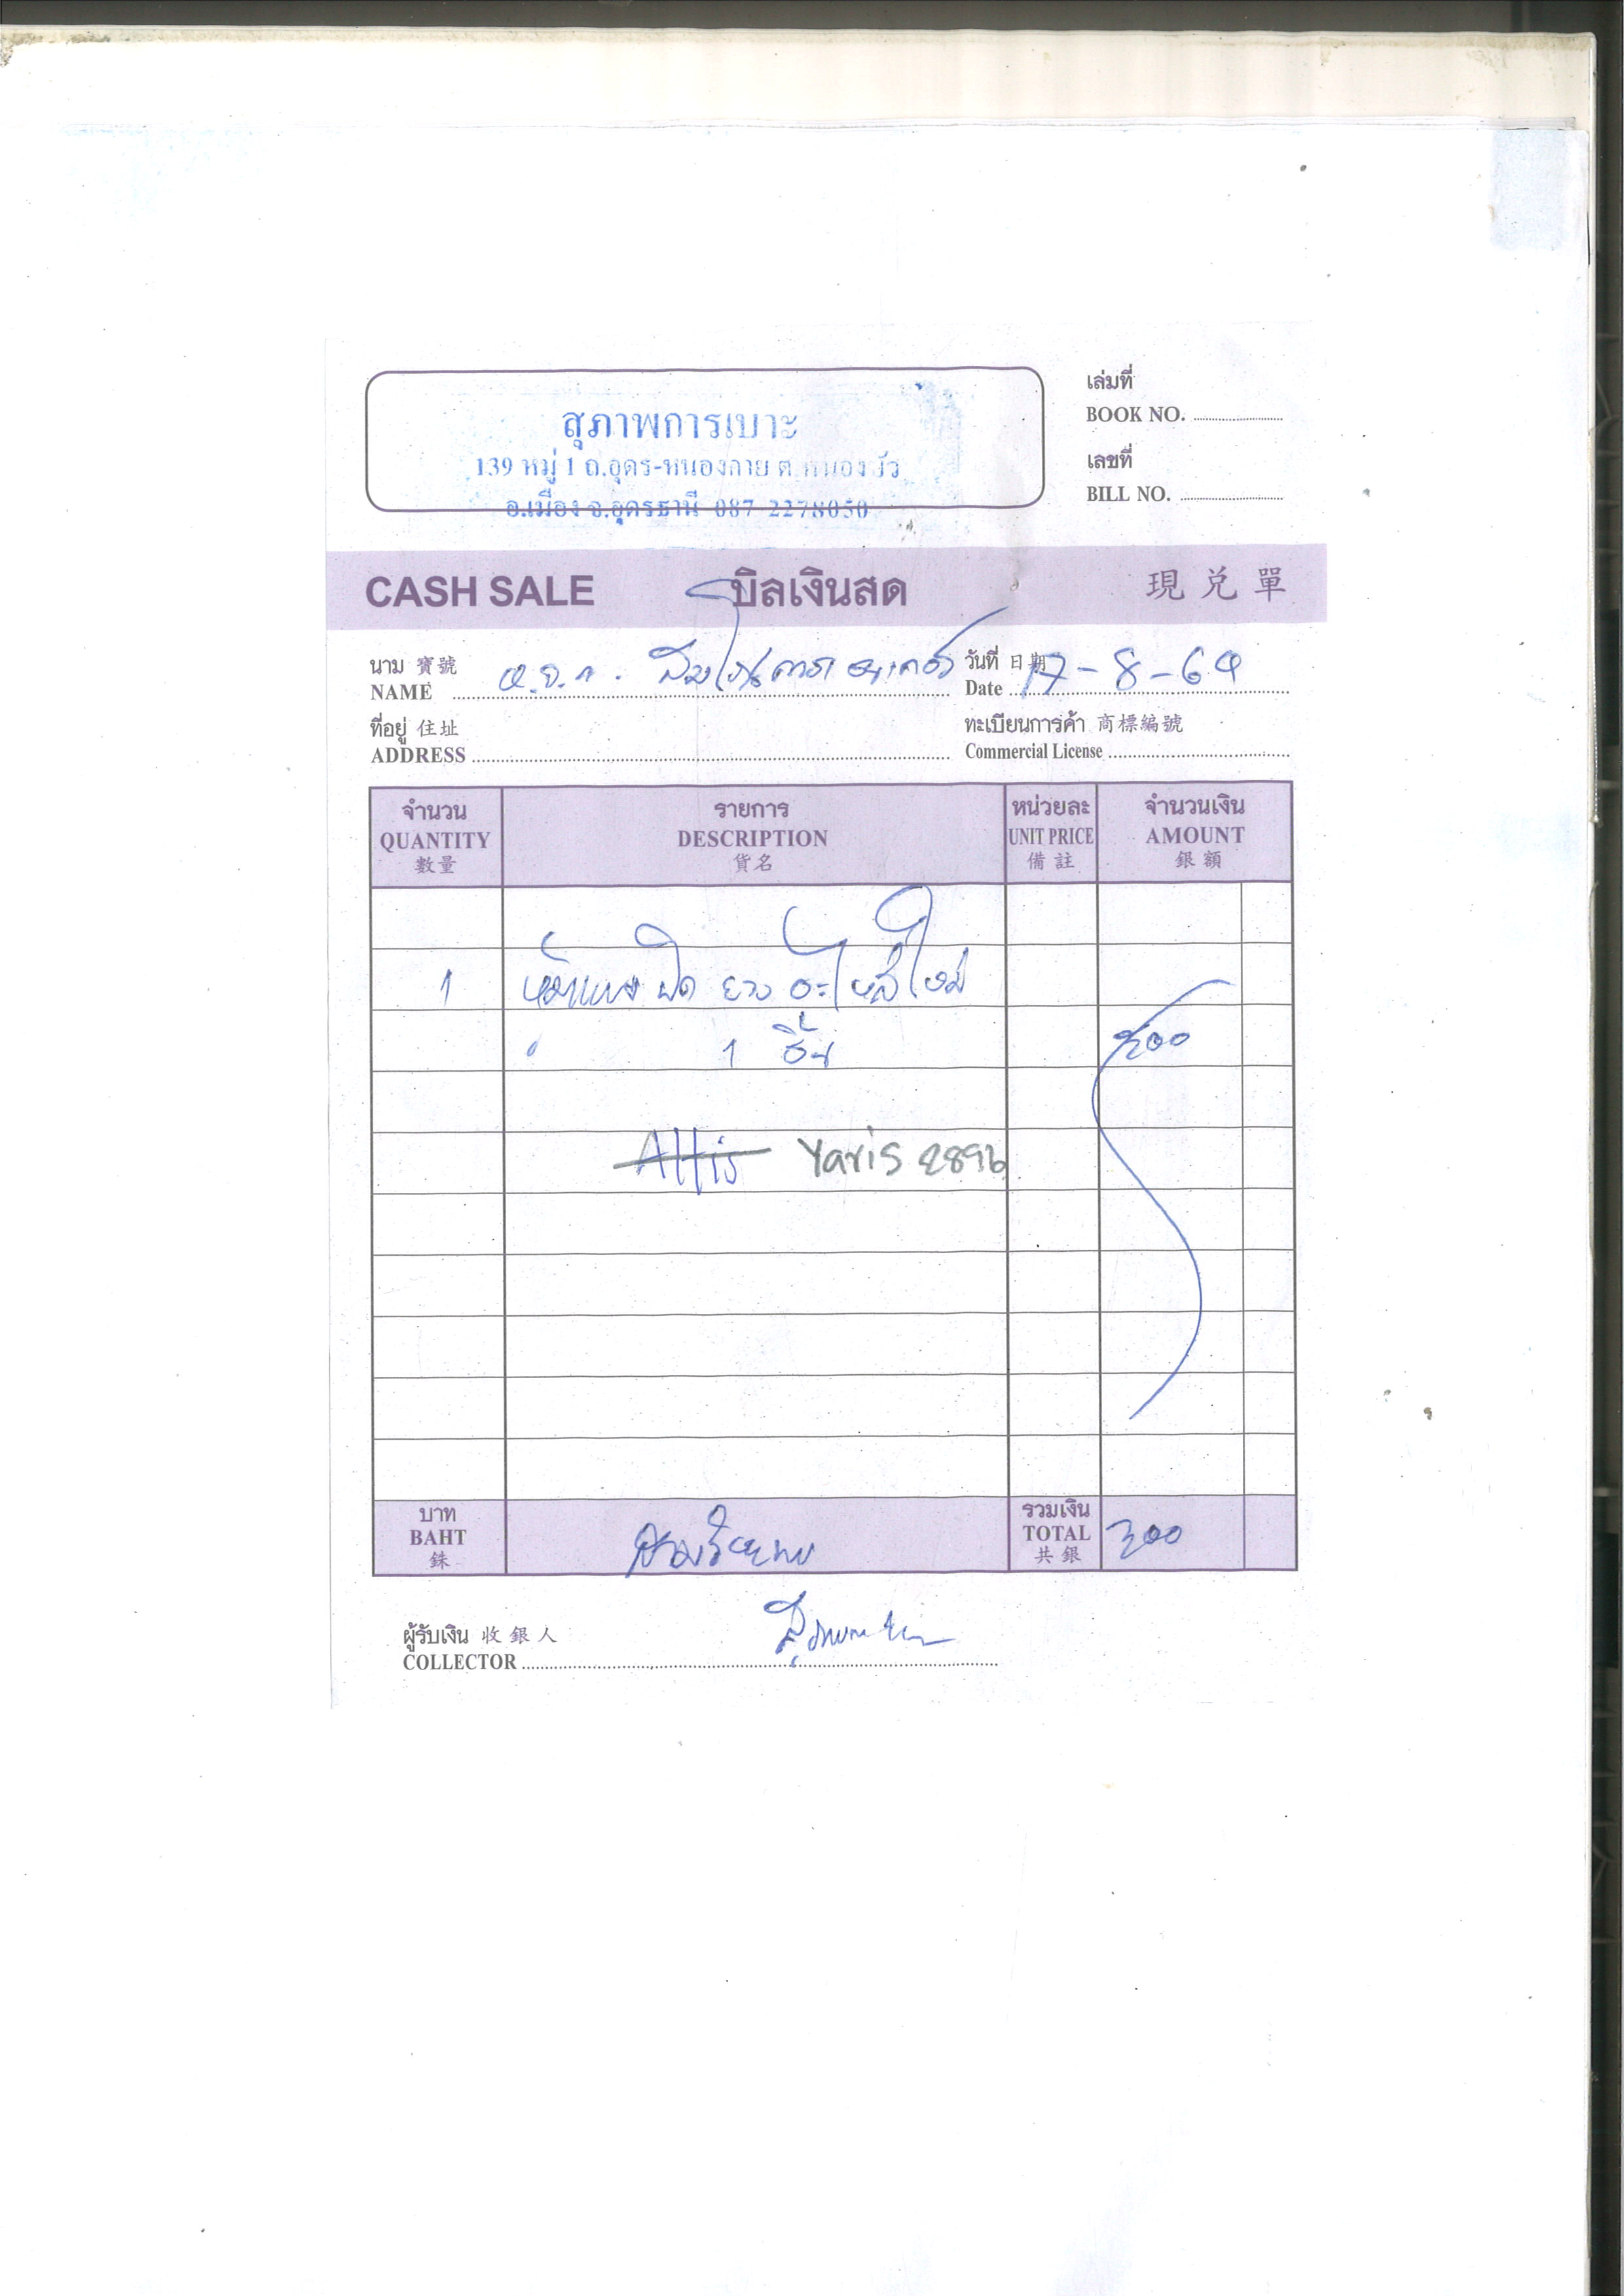 สุภาพการเบาะ
139 หมู่ 1 ถ.อุดร-หนองคาย ต.หนองบัว
อ.เมือง จ.อุดรธานี 087 2278050
เล่มที่
BOOK NO.
เลขที่
BILL NO.
CASH SALE บิลเงินสด 現兌單
นาม 寶號
NAME
วันที่ 日期
Date 17-8-64
ที่อยู่ 住址
ADDRESS
ทะเบียนการค้า 商標編號
Commercial License
จำนวน รายการ หน่วยละ จำนวนเงิน
QUANTITY DESCRIPTION UNIT PRICE AMOUNT
數量 貨名 備註 銀額
1 ยาง อะไหล่ใหม่
1 ชิ้น 300
Altis Yaris 2896
บาท รวมเงิน
BAHT สามร้อยบาท TOTAL 300
銖 共銀
ผู้รับเงิน 收銀人
COLLECTOR